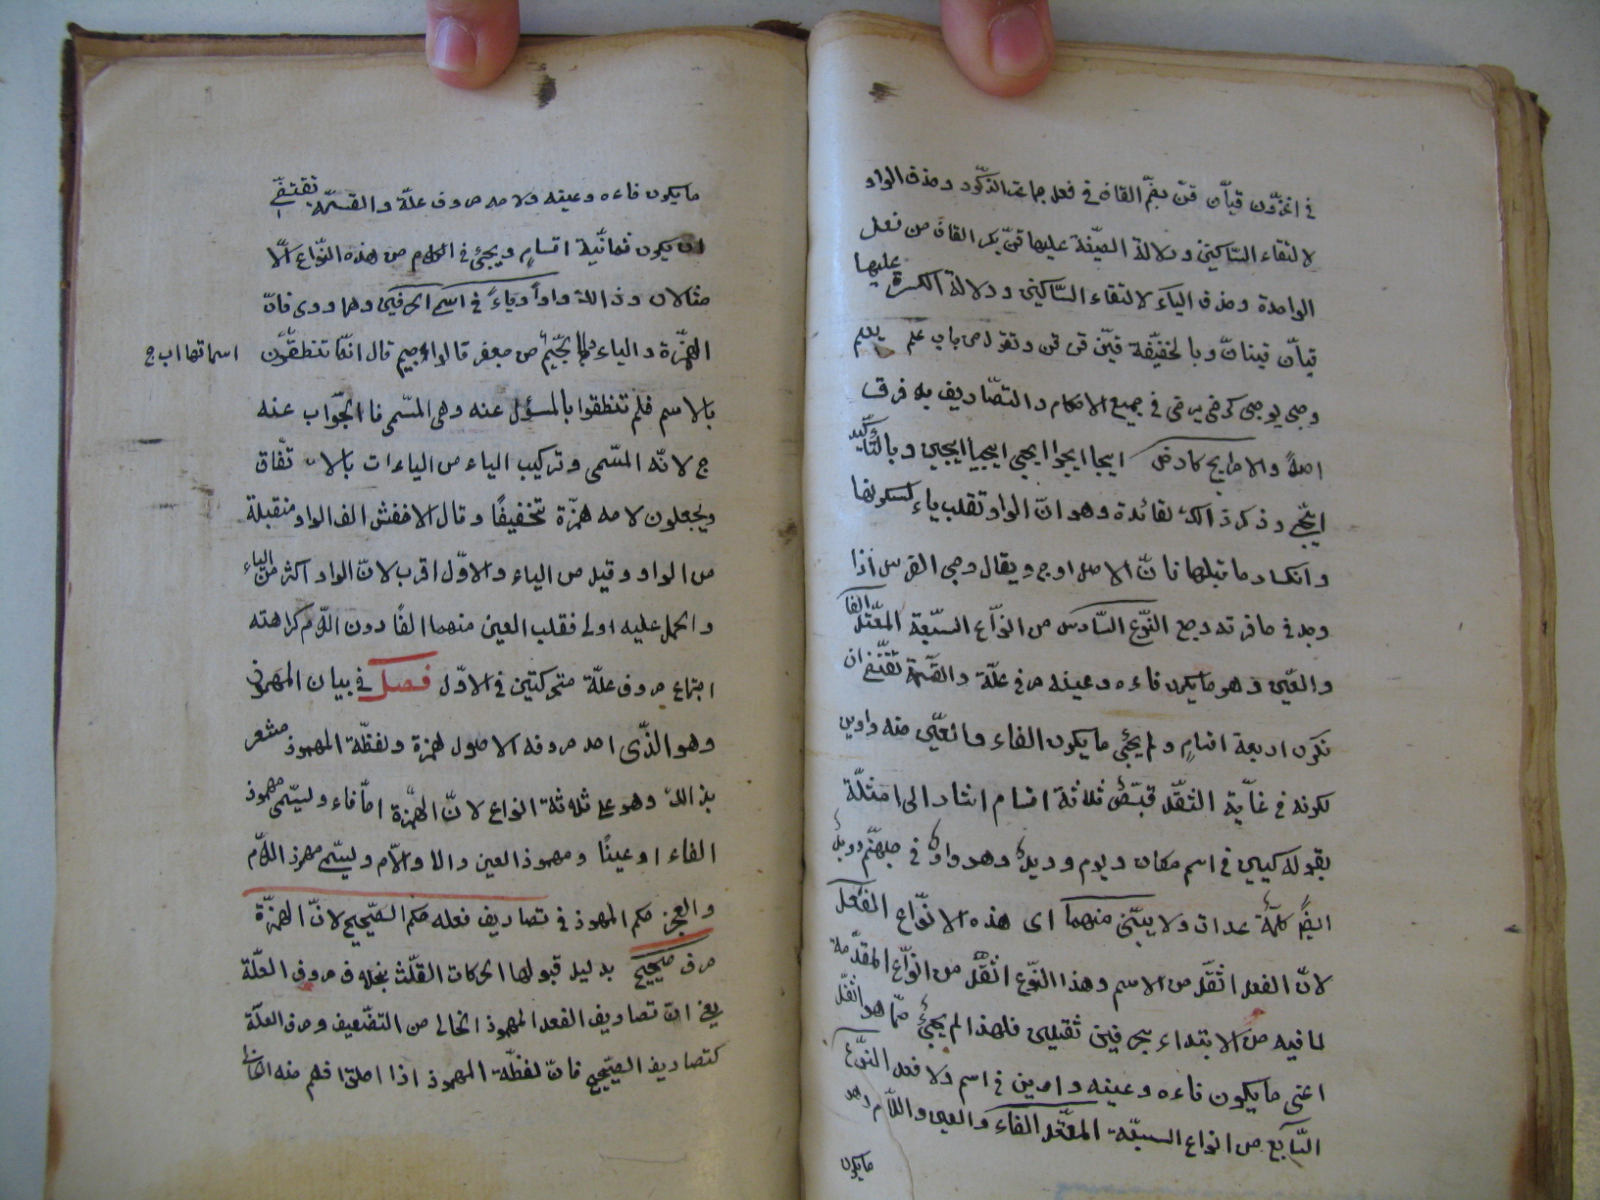 في اغزون قيان قن بضم القاف في فعل جماعة الذكور وحذف الواو
لالتقاء الساكنين ودلالة الضمة عليها قن بكسر القاف من فعل
الواحدة وحذف الياء لالتقاء الساكنين ودلالة الكسرة عليها
قيان قينان وبالخفيفة قين قن قن وتقول من باب علم يعلم
وجي يوجى كرضي يرضى في جميع الاحكام والتصاريف به فرق
اصلا والامر ايج كارض ايجيا ايجوا ايجي ايجيا ايجين وبالتأكيد
ايجين وذكر ذالك لفائدة وهو ان الواو تقلب ياء لسكونها
وانكسار ما قبلها فان الاصل اوج ويقال وجي الفرس اذا
وجد في حافرته وجع النوع السادس من انواع السبعة المعتل الفاء
والعين وهو ما يكون فاءه وعينه حرف علة والقسمة تقتضي ان
تكون اربعة اقسام ولم يجئ ما يكون الفاء والعين منه واوين
لكونه في غاية الثقل فبقي ثلاثة اقسام اشار الى امثلة
بقوله كيين في اسم مكان ويوم وويل وهو واد في جهنم وويل
ايضا كلمة عذاب ولا يبنى منهما اى هذه الانواع الفعل
لان الفعل اثقل من الاسم وهذا النوع اثقل من انواع المقدمة
لما فيه من الابتداء بحرفين ثقيلين فلهذا لم يجئ مما هو اثقل
اعنى ما يكون فاءه وعينه واوين في اسم ولا فعل النوع
السابع من انواع السبعة المعتل الفاء والعين واللام وهو
ما يكون
ما يكون فاءه وعينه ولامه حروف علة والقسمة تقتضي
ان يكون ثمانية اقسام ويجئ في الكلام من هذه النواع الا
مثالان وذالك واو وياء في اسم الحرفين وهما ووى فان
الهمزة والياء والجيم من جعفر قالوا جيم قال انما تنطقون
اسماتها اب ج
بالاسم فلم تنطقوا بالمسؤل عنه وهى المسمى فا الجواب عنه
ج لانه المسمى وتركيب الياء من الياءات بالاتفاق
ويجعلون لامه همزة تخفيفا وقال الاخفش الف الواو منقبلة
من الواو وقيل من الياء والاول اقرب لان الواو اكثر من الياء
والحمل عليه اولى فقلب العين منهما الفا دون اللام كراهته
اجتماع حروف علة متحركتين في الاول فصل في بيان المهموز
وهو الذى احد حروفه الاصول همزة ولفظة المهموز مشعر
بذالك وهو على ثلاثة انواع لان الهمزة اما فاء وليسمى مهموز
الفاء او عينا ومهموز العين والا ولام وليسمى مهموز اللام
والعجز حكم المهموز في تصاريف فعله حكم الصحيح لان الهمزة
حرف صحيح بدليل قبولها الحركات الثلث بخلاف حروف العلة
يعني ان تصاريف الفعل المهموز الخالى من التضعيف وحرف العلة
كتصاريف الصحيح فان لفظة المهموز اذا اطلق افهم منه